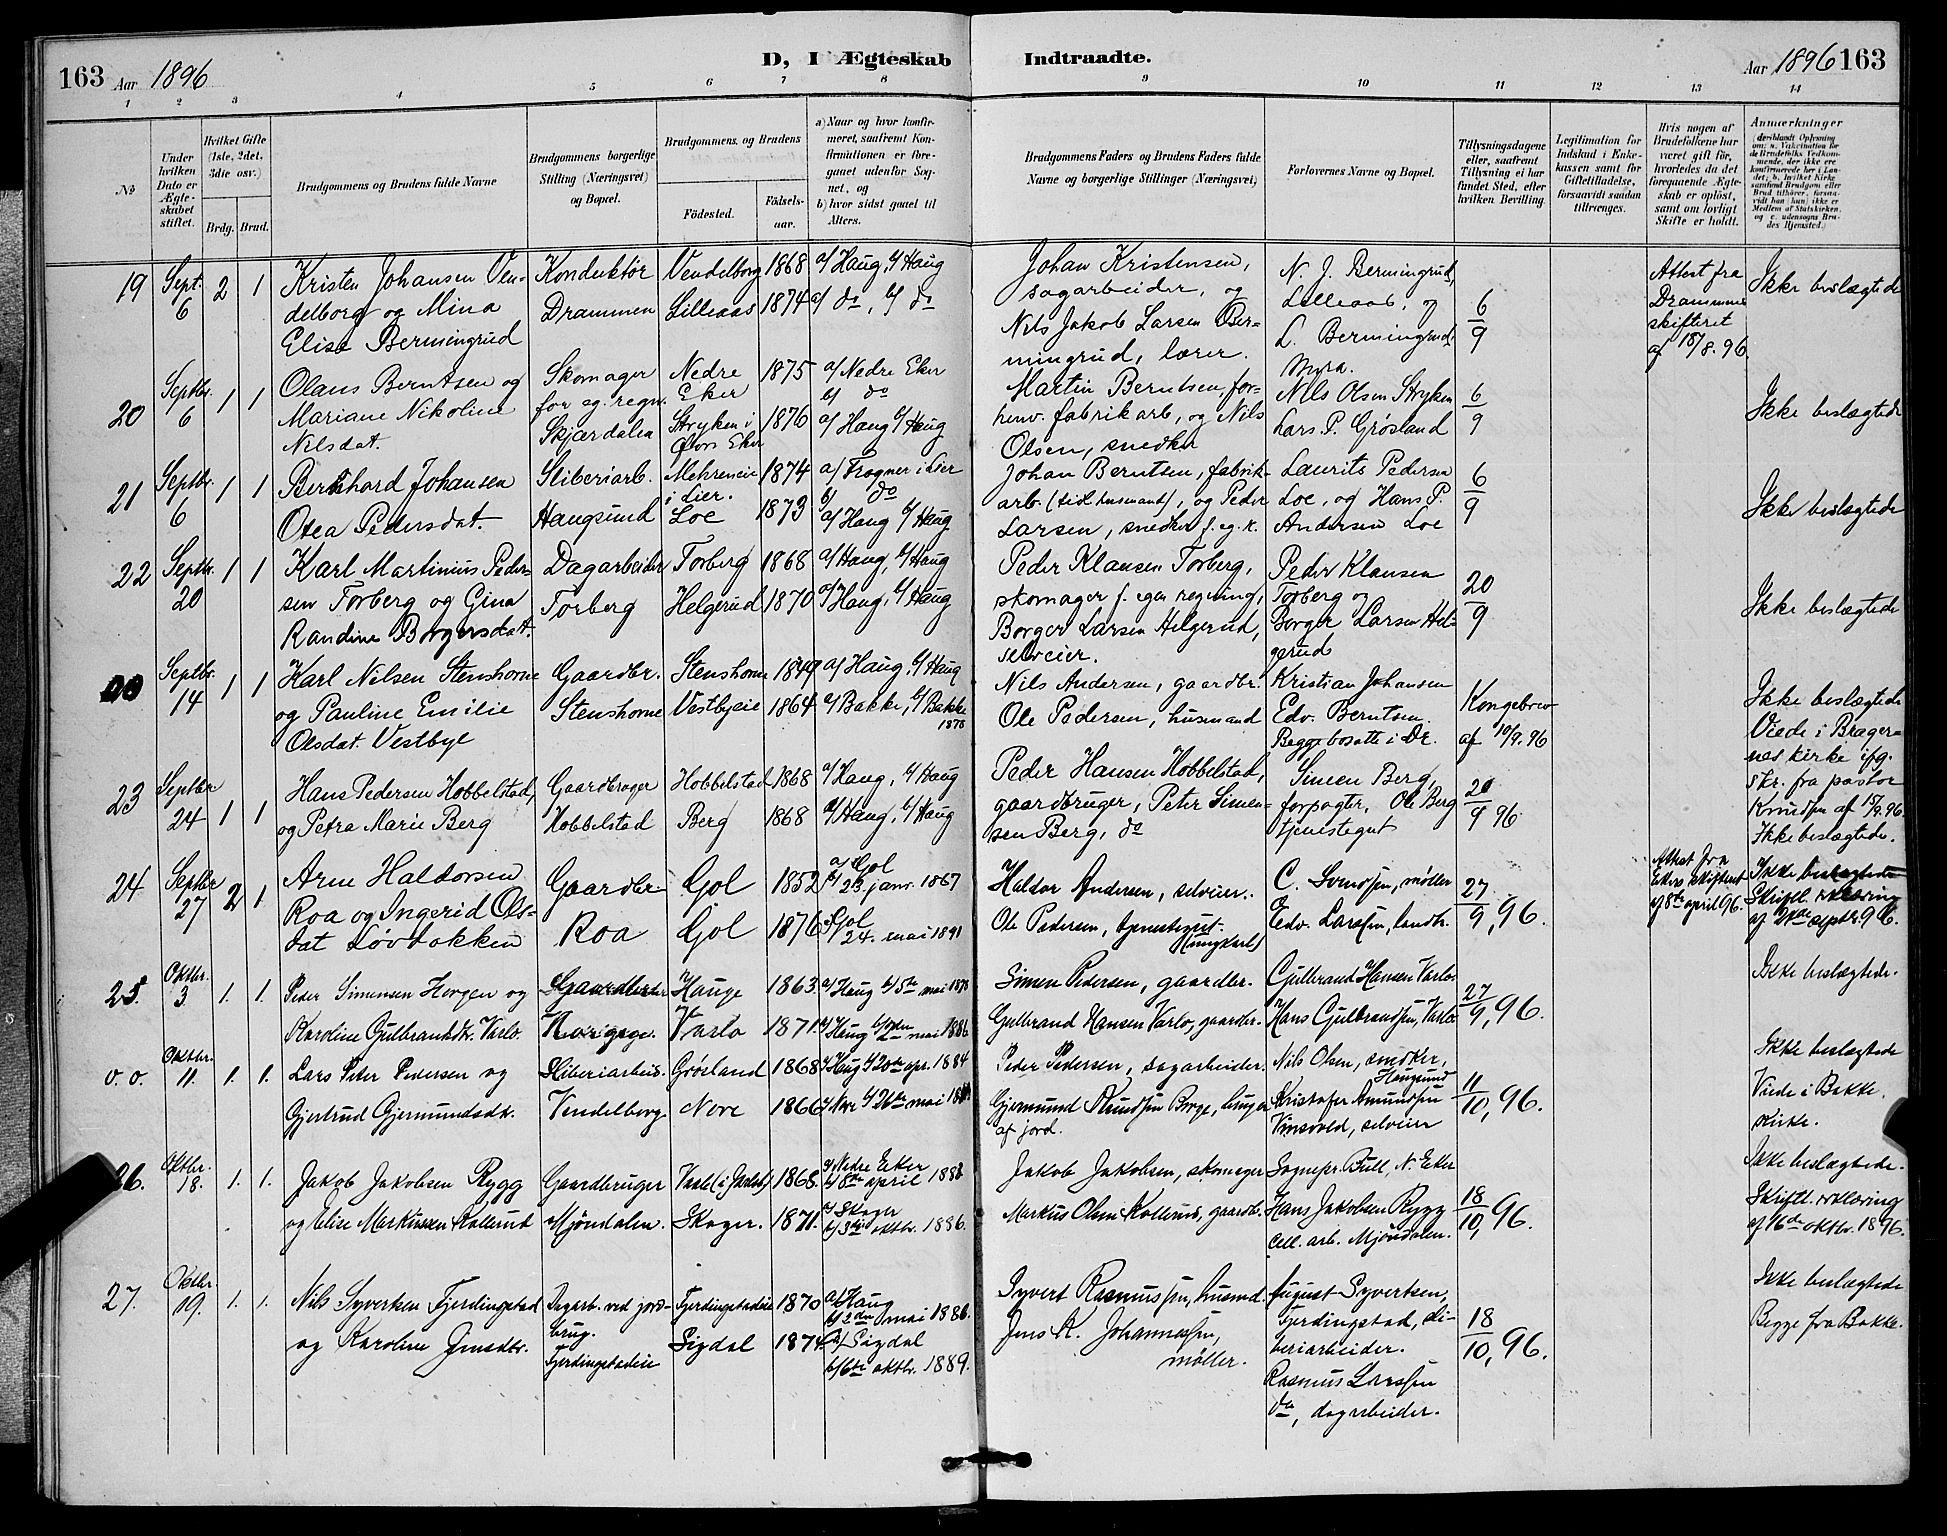 163 Aar 1896 D, I Ægteskab Indtraadte. Aar 1896 163
1 2 3 4 5 6 7 8 9 10 11 12 13 14
No
Under hvilken Dato er Ægteskabet stiftet.
Hvilket Gifte (1ste, 2det, 3die osv.)
Brdg. Brud.
Brudgommens og Brudens fulde Navne
Brudgommens borgerlige Stilling (Næringsvei) og Bopæl.
Brudgommens og Brudens
Fødested.
Fødselsaar.
a) Naar og hvor konfirmeret, saafremt Konfirmationen er foregaaet udenfor Sognet, og
b) hvor sidst gaaet til Alters.
Brudgommens Faders og Brudens Faders fulde Navne og borgerlige Stillinger (Næringsvei)
Forlovernes Navne og Bopæl.
Tillysningsdagene eller, saafremt Tillysning ei har fundet Sted, efter hvilken Bevilling.
Legitimation for Indskud i Enkekassen samt for Giftetilladelse, forsaavidt saadan tiltrænges.
Hvis nogen af Brudefolkene har været gift før, hvorledes da det foregaaende Ægteskab er opløst, samt om lovligt Skifte er holdt.
Anmærkninger
19 Sept. 6 2 1
Kristen Johansen Ven-
delborg og Mina
Elise Bermingrud
Konduktør
Drammen
Vendelborg 1868 a/ Haug, b/ Haug
Lilleaas 1874 a/ do, b/ do
Johan Kristensen,
sagarbeider, og
Nils Jakob Larsen Ber-
mingrud, lærer.
N. J. Bermingrud,
Lilleaas, og
L. Bermingrud
Myra.
6/9
Attest fra
Drammens
skifteret
af 18/8. 96.
Ikke beslægtede
20 Septbr. 6 1 1
Olaus Berntsen og
Mariane Nikoline
Nilsdat.
Skomager
for eg. regn.
Skjærdalen
Nedre
Eker 1875 a/ Nedre Eker
b/ do
Stryken i
Øvre Eker 1876 a/ Haug b/ Haug
Martin Berntsen, for-
henv. fabrikarb, og Nils
Olsen, snedker
Nils Olsen Stryken
Lars P. Grøsland
6/9
Ikke beslægtede
21 Septbr. 6 1 1
Bernhard Johansen
Otea Pedersdat.
Sliberiarb.
Haugsund
Mehreneie
i Lier. 1874 a/ Frogner i Lier
b/ do
Loe 1873 a/ Haug b/ Haug
Johan Berntsen, fabrik-
arb. (tidl. husmand), og Peder
Larsen, snedker f. eg. r.
Laurits Pedersen
Loe, og Hans P.
Andersen Loe
6/9
Ikke beslægtede
22 Septbr. 20 1 1
Karl Martinius Peder-
sen Torberg og Gina
Randine Borgersdat.
Dagarbeider
Torberg
Torberg 1868 a/ Haug, b/ Haug
Helgerud 1870 a/ Haug, b/ Haug
Peder Klausen Torberg,
skomager f. egen regning,
Borger Larsen Helgerud,
selveier.
Peder Klausen
Torberg og
Borger Larsen Hel-
gerud
20/9
Ikke beslægtede
Septbr. 14 1 1
Karl Nilsen Stenshorne
og Pauline Emilie
Olsdat. Vestbye
Gaardbr.
Stenshorne
Stenshorne 1849 a/ Haug, b/ Haug
Vestbyeie 1864 a/ Bakke, b/ Bakke
1878
Nils Andersen, gaardbr.
Ole Pedersen, husmand
Kristian Johansen
Edv. Berntsen.
Begge bosatte i Dr.
Kongebrev
af 10/9. 96
Ikke beslægtede
Viede i Brager-
nes kirke ifg.
skr. fra pastor
Knudsen af 15/9. 96.
23 Septbr 24 1 1
Hans Pedersen Hobbelstad,
og Petra Marie Berg
Gaardbruger
Hobbelstad
Hobbelstad 1868 a/ Haug, b/ Haug
Berg 1868 a/ Haug, b/ Haug
Peder Hansen Hobbelstad,
gaardbruger, Peter Simen-
sen Berg, do
Simen Berg,
forpagter, Ole Berg
tjenestegut
20/9 96.
Ikke beslægtede.
24 Septbr 27 2 1
Arne Haldorsen
Roa og Ingerid Ols-
dat Løvdokken
Gaardbr
Roa
Gol 1852 a/ Gol
b/ 23. janr. 1867
Gol 1876 Gol
24. mai 1891
Haldor Andersen, selveier.
Ole Pedersen, tjenestegut
(ungkarl)
C. Svendsen, møller
Edv. Larsen, landh.
27/9, 96.
Attest fra
Ekers skifteret
af 8de april 96.
Ikke beslægtede
Skriftl. erklæring
af septbr. 96.
25. Oktbr. 3 1. 1.
Peder Simensen Horgen og
Karoline Gulbrandsdtr. Varlo.
Gaardbruger
Hauge 1863. a/ Haug b/ 5te mai 1878
Varlo 1871. a/ Haug b/ 2den mai 1886
Simen Pedersen, gaardbr.
Gulbrand Hansen Varlo, gaardbr.
Gulbrand Hansen Varlo
Hans Gulbrandsen, Varlo
27/9, 96.
Ikke beslægtede.
o. o. Oktbr. 11. 1. 1.
Lars Peter Pedersen og
Gjertrud Gjermundsdtr.
Sliberiarbeid.
Vendelborg
Grøsland 1868 a/ Haug b/ 20de apr. 1884
Nore 1866 a/ Nore b/ 26de mai
Peder Pedersen, sagarbeider.
Gjermund Knudsen Borge, bruger
af jord.
Nils Olsen, snedker,
Haugsund
Kristofer Amundsen
Vinsvold, selveier
11/10, 96.
Ikke beslægtede
Viede i Bakke
kirke.
26. Oktbr. 18. 1. 1.
Jakob Jakobsen Rygg
og Elise Markussen Kollerud
Gaardbruger
Mjøndalen.
1868. a/ Nedre Eker
b/ 8de april 1883
Skoger. 1871. a/ Skoger
b/ 3die oktbr. 1886.
Jakob Jakobsen, skomager
Markus Olsen Kollerud, gaardb.
Sognepr. Bull N. Eker
Hans Jakobsen Rygg
cell. arb. Mjøndalen.
18/10, 96.
Ikke beslægtede.
Skriftl. erklæring
af 16de oktbr. 1896.
27. Oktbr. 19. 1. 1.
Nils Syvertsen Fjerdingstad
og Karoline Jensdtr.
Dagarb. ved jord-
brug.
Fjerdingstadeie
Fjerdingstadeie 1870 a/ Haug
b/ 2den mai 1886.
Sigdal 1874 a/ Sigdal
b/ 6te oktbr. 1889.
Syvert Rasmussen, husmd.
Jens K. Johannessen,
møller.
August Syvertsen,
Fjerdingstad, sli-
beriarbeider.
Rasmus Larssen
do, dagarbeider.
18/10, 96.
Ikke beslægtede
Begge fra Bakke.